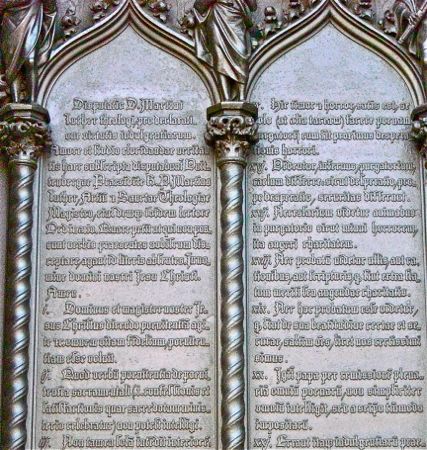 Disputatio D. Martini
Luther theologi, pro declarati
one virtutis indulgentiarum.
Amore et studio elucidandae verita
tis haec subscripta disputabunt Wit
tenbergae Praesidete R. P. Martino
Luther, Artiū et Sacrae Theologiae
Magistro, eiusdemque ibidem lectore
Ordinario. Quare petit ut qui non pos
sunt verbis praesentes nobiscum dis
ceptare, agant id literis absentes. In no
mine domini nostri Jesu Christi.
Amen.
i. Dominus et magister noster Je
sus Christus dicendo poenitentiā agi
te omnem vitam fidelium, poeniten
tiam esse voluit.
ii. Quod verbū poenitentia de poeni
tentia sacramentali (i. confessionis et
satisfactionis quae sacerdotum minis
terio celebratur) non potest intelligi.
iii. Non tamen solā intēdit interiorē
xv. Hic timor et horror satis est, se
solo (ut alia taceam) facere poenam
purgatorii cum sit proximus despera
tionis horrori.
xvi. Videntur, infernus, purgatorium,
caelum differre: sicut desperatio, pro
pe desperatio, securitas differunt.
xvii. Necessarium videtur animabus
in purgatorio sicut minui horrorem,
ita augeri charitatem.
xviii. Nec probatū videtur ullis, aut ra
tionibus, aut scripturis, q. sint extra sta
tum meriti seu augendae charitatis.
xix. Nec hoc probatum esse videtur,
q. sint de sua beatitudine certae et se
curae, saltem oēs, licet nos certissimi
simus.
xx. Igitur papa per remissionē plena
riā omniū poenarū, non simpliciter
omniū intelligit, sed a seipso tātūmodo
impositarū.
xxi. Errant itaque indulgentiarū prae